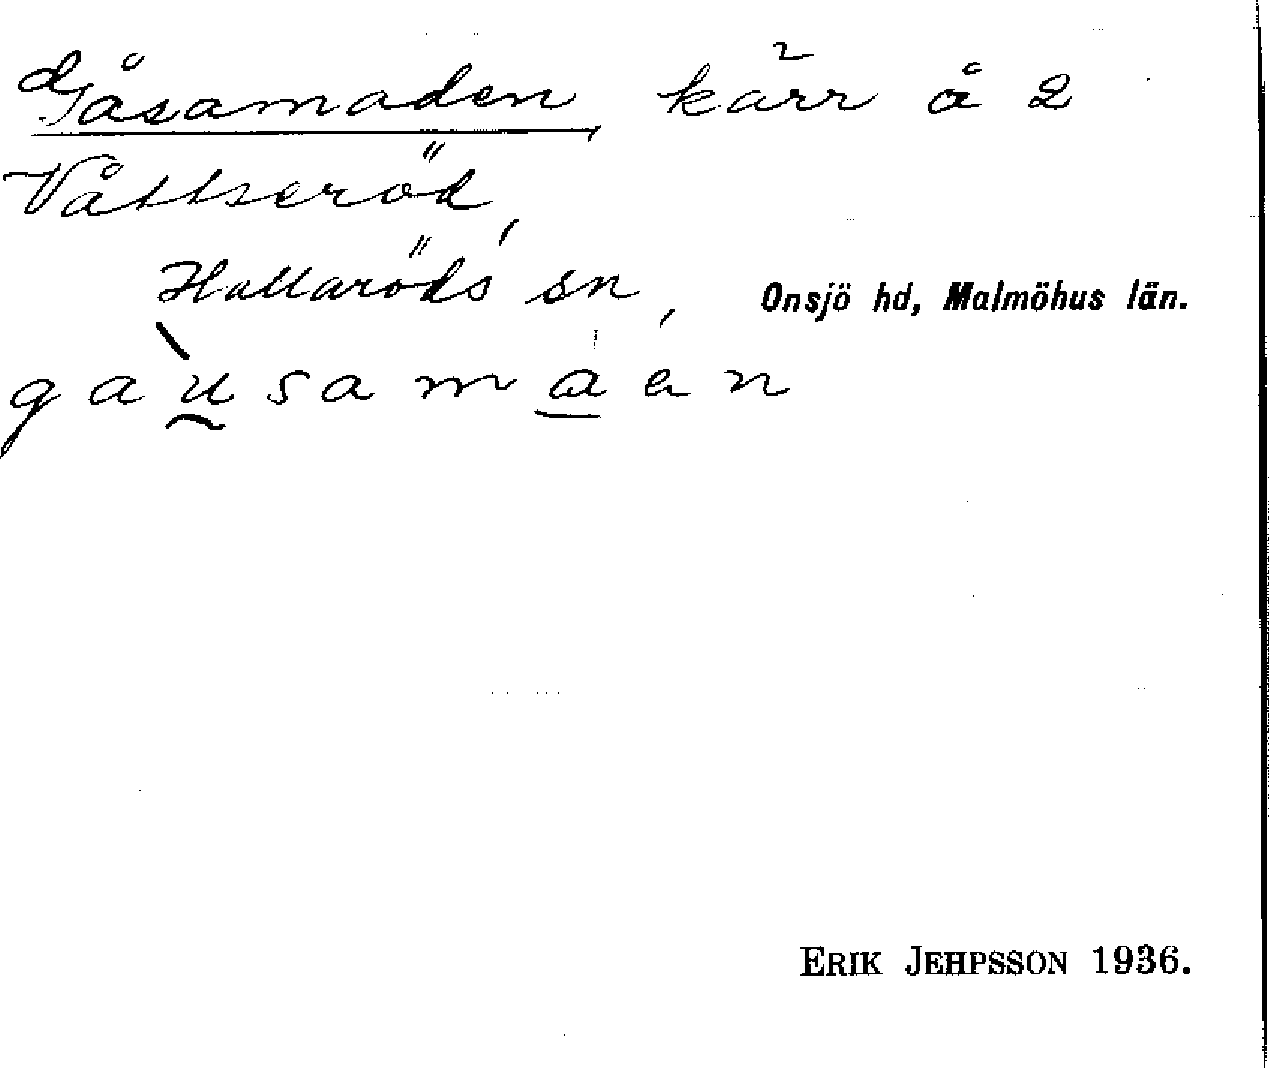 Gåsamaden, kärr å 2
Våttseröd,
Hallaröds sn, Onsjö hd, Malmöhus län.
gaù̯sama̲en
ERIK JEHPSSON 1936.